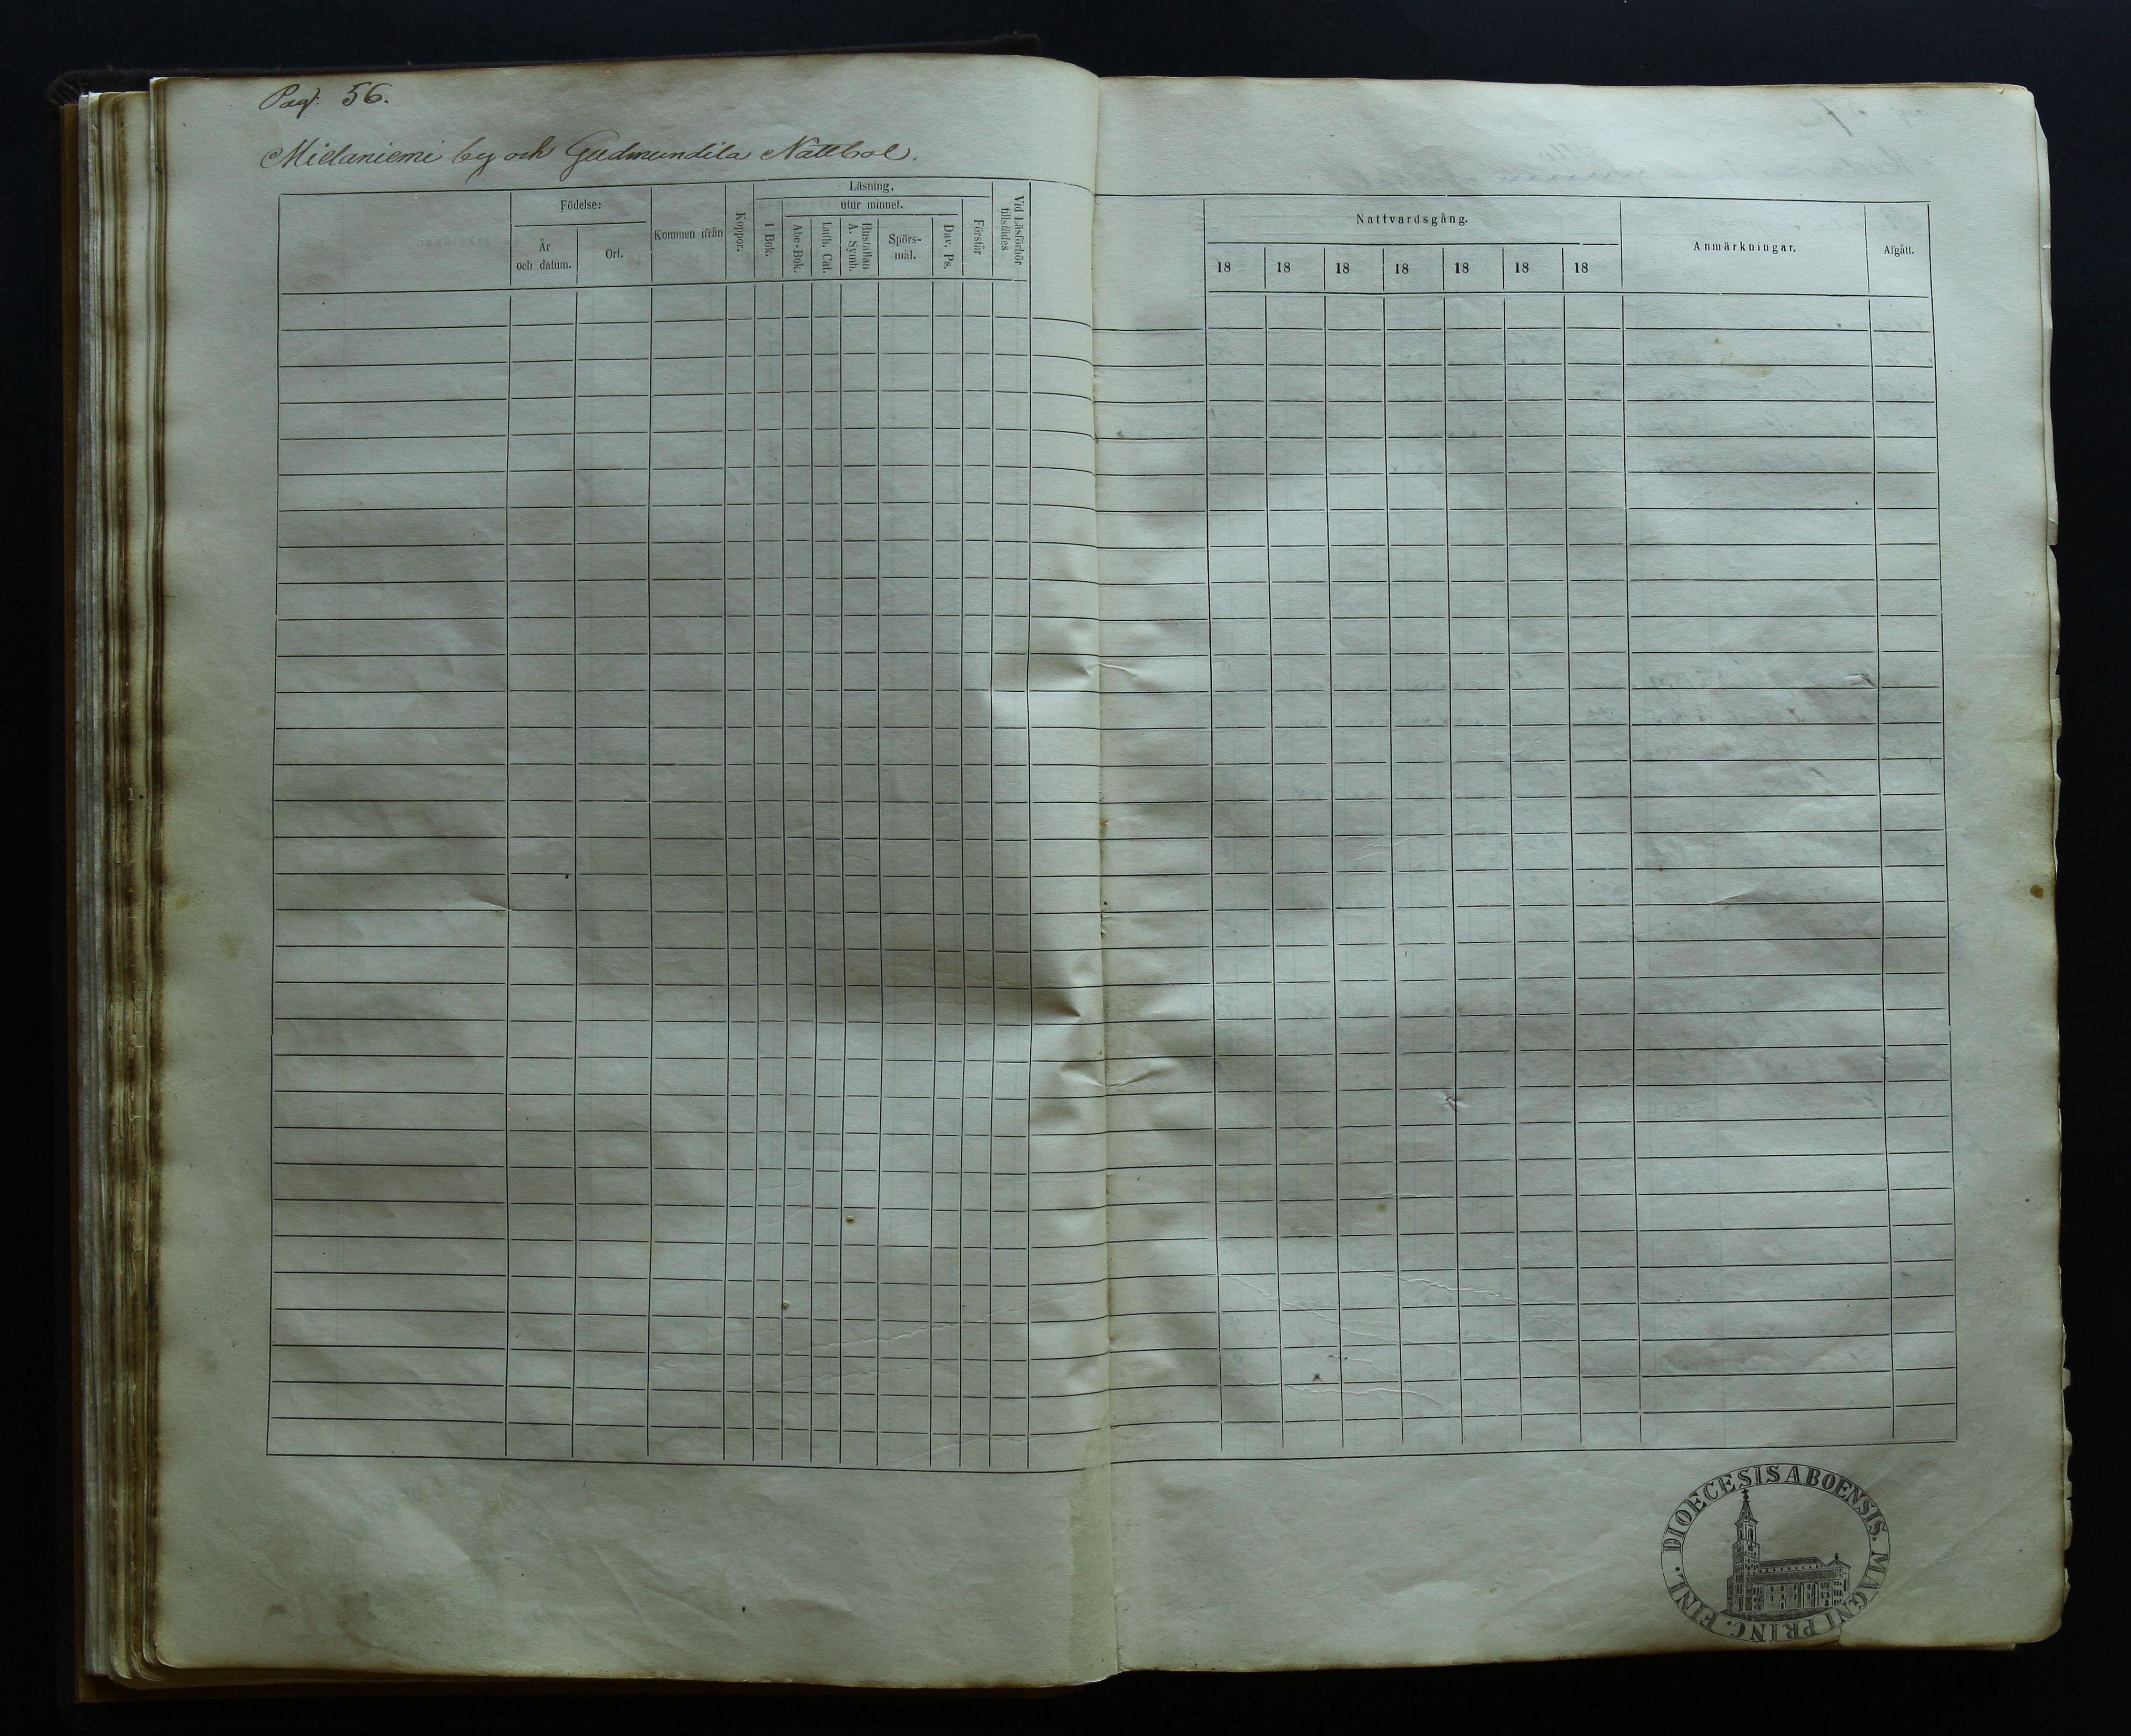 Pag. 56.
Mielaniemi by och Gudmundila Nattbol.
Födelse:
År
och datum.
Ort.
Kommen ifrån
Koppor.
Läsning,
utur minnet.
I Bok.
Abc-Bok.
Luth. Cat.
Hustaflan
A. Symb.
Spörs-
mål.
Dav. Ps.
Förstår
Vid Läsförhör
tillstädes
Nattvardsgång.
18 18 18 18 18 18 18
Anmärkningar.
Afgått.
DIOECESIS ABOENSIS. MAGNI PRINC. FINL.